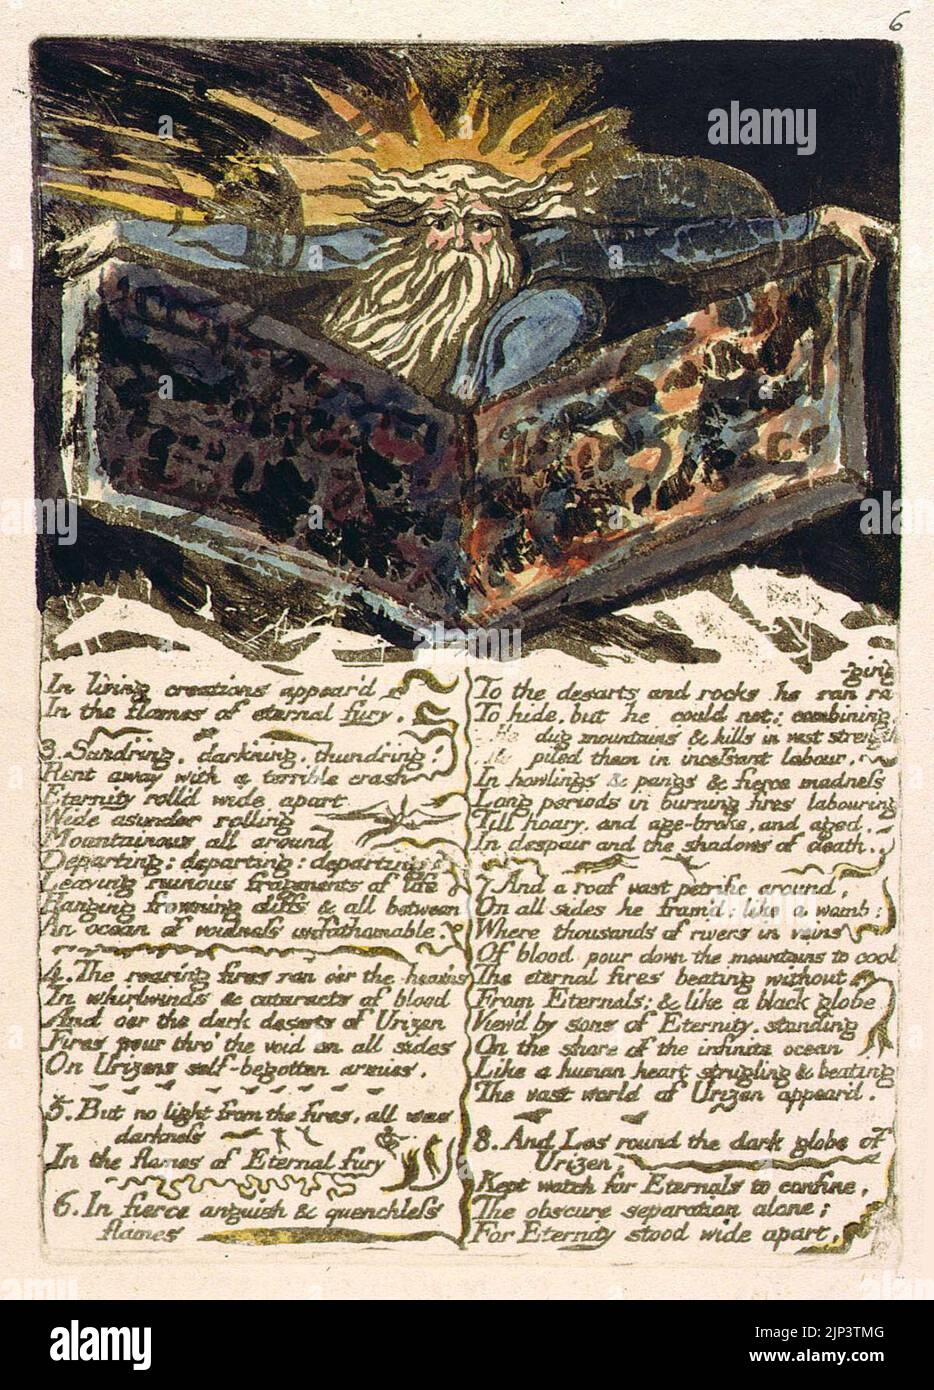 6
In living creations appear'd
In the flames of eternal fury.
3. Sundring, darkning, thundring!
Rent away with a terrible crash
Eternity roll'd wide apart
Wide asunder rolling
Mountainous all around
Departing; departing; departing:
Leaving ruinous fragments of life
Hanging frowning cliffs & all between
An ocean of voidness unfathomable.
4. The roaring fires ran o'er the heav'ns
In whirlwinds & cataracts of blood
And o'er the dark desarts of Urizen
Fires pour thro' the void on all sides
On Urizens self-begotten armies.
5. But no light from the fires, all was
darkness
In the flames of Eternal fury
6. In fierce anguish & quenchless
flames
-ging
To the desarts and rocks he ran ra-
To hide, but he could not; combining
He dug mountains & hills in vast strength,
He piled them in incessant labour,
In howlings & pangs & fierce madness
Long periods in burning fires labouring
Till hoary, and age-broke, and aged,
In despair and the shadows of death.
7. And a roof vast petrific around,
On all sides he fram'd: like a womb;
Where thousands of rivers in veins
Of blood pour down the mountains to cool
The eternal fires beating without
From Eternals; & like a black globe
View'd by sons of Eternity, standing
On the shore of the infinite ocean
Like a human heart strugling & beating
The vast world of Urizen appear'd.
8. And Los round the dark globe of
Urizen,
Kept watch for Eternals to confine,
The obscure separation alone;
For Eternity stood wide apart,
alamy
Image ID: 2JP3TMG
www.alamy.com